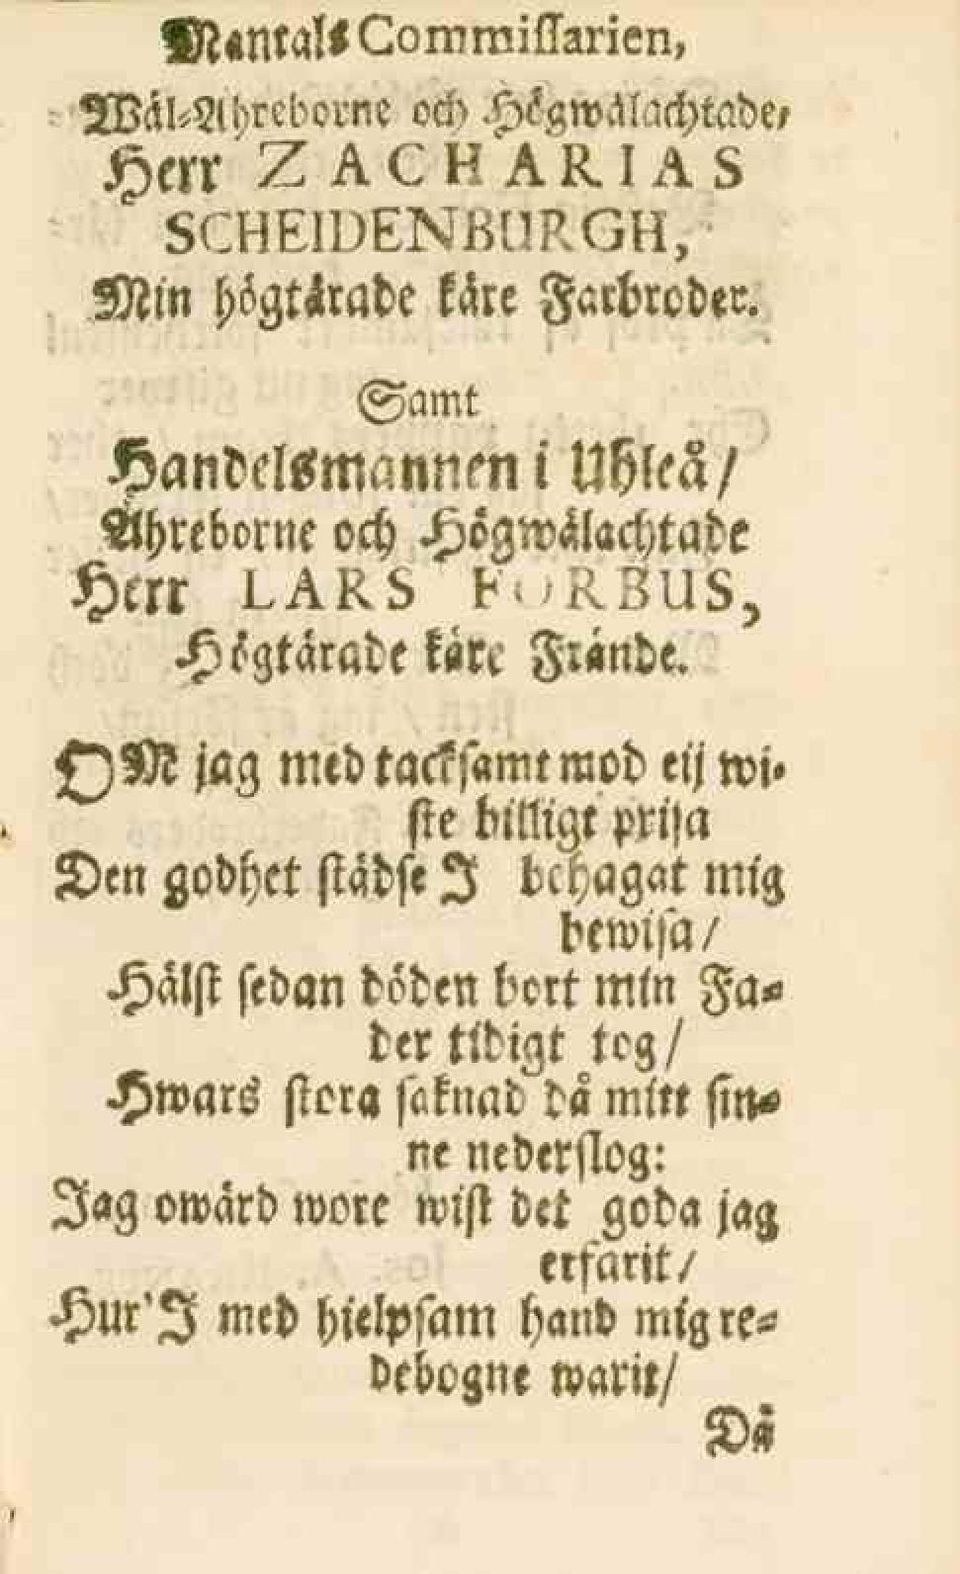 Mantals Commissarien,
Wäl-Ahreborne och Högwälachtade,
Herr ZACHARIAS
SCHEIDENBURGH,
Min högtärade käre Farbroder.
Samt
Handelsmannen i Uhleå/
Ahreborne och Högwälachtade
Herr LARS FORBUS,
Högtärade käre Frände.
OM jag med tacksamt mod eij wi-
ste billigt prisa
Den godhet städse I behagat mig
bewisa/
Hälst sedan döden bort min Fa-
der tidigt tog/
Hwars stora saknad då mitt sin-
ne nederslog:
Jag owärd wore wist det goda jag
erfarit/
Hur' I med hielpsam hand mig re-
debogne warit/
Då